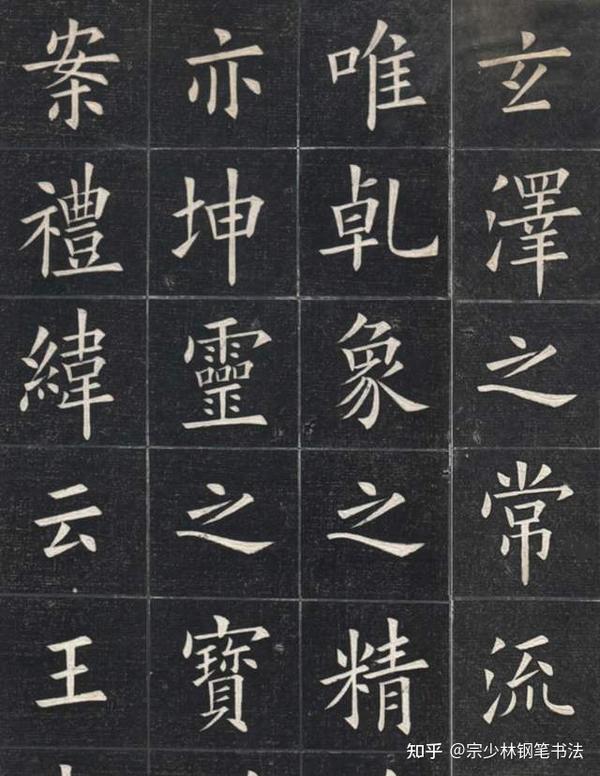 玄澤之常流
唯乹象之精
亦坤靈之寶
案禮緯云王
知乎 @宗少林钢笔书法